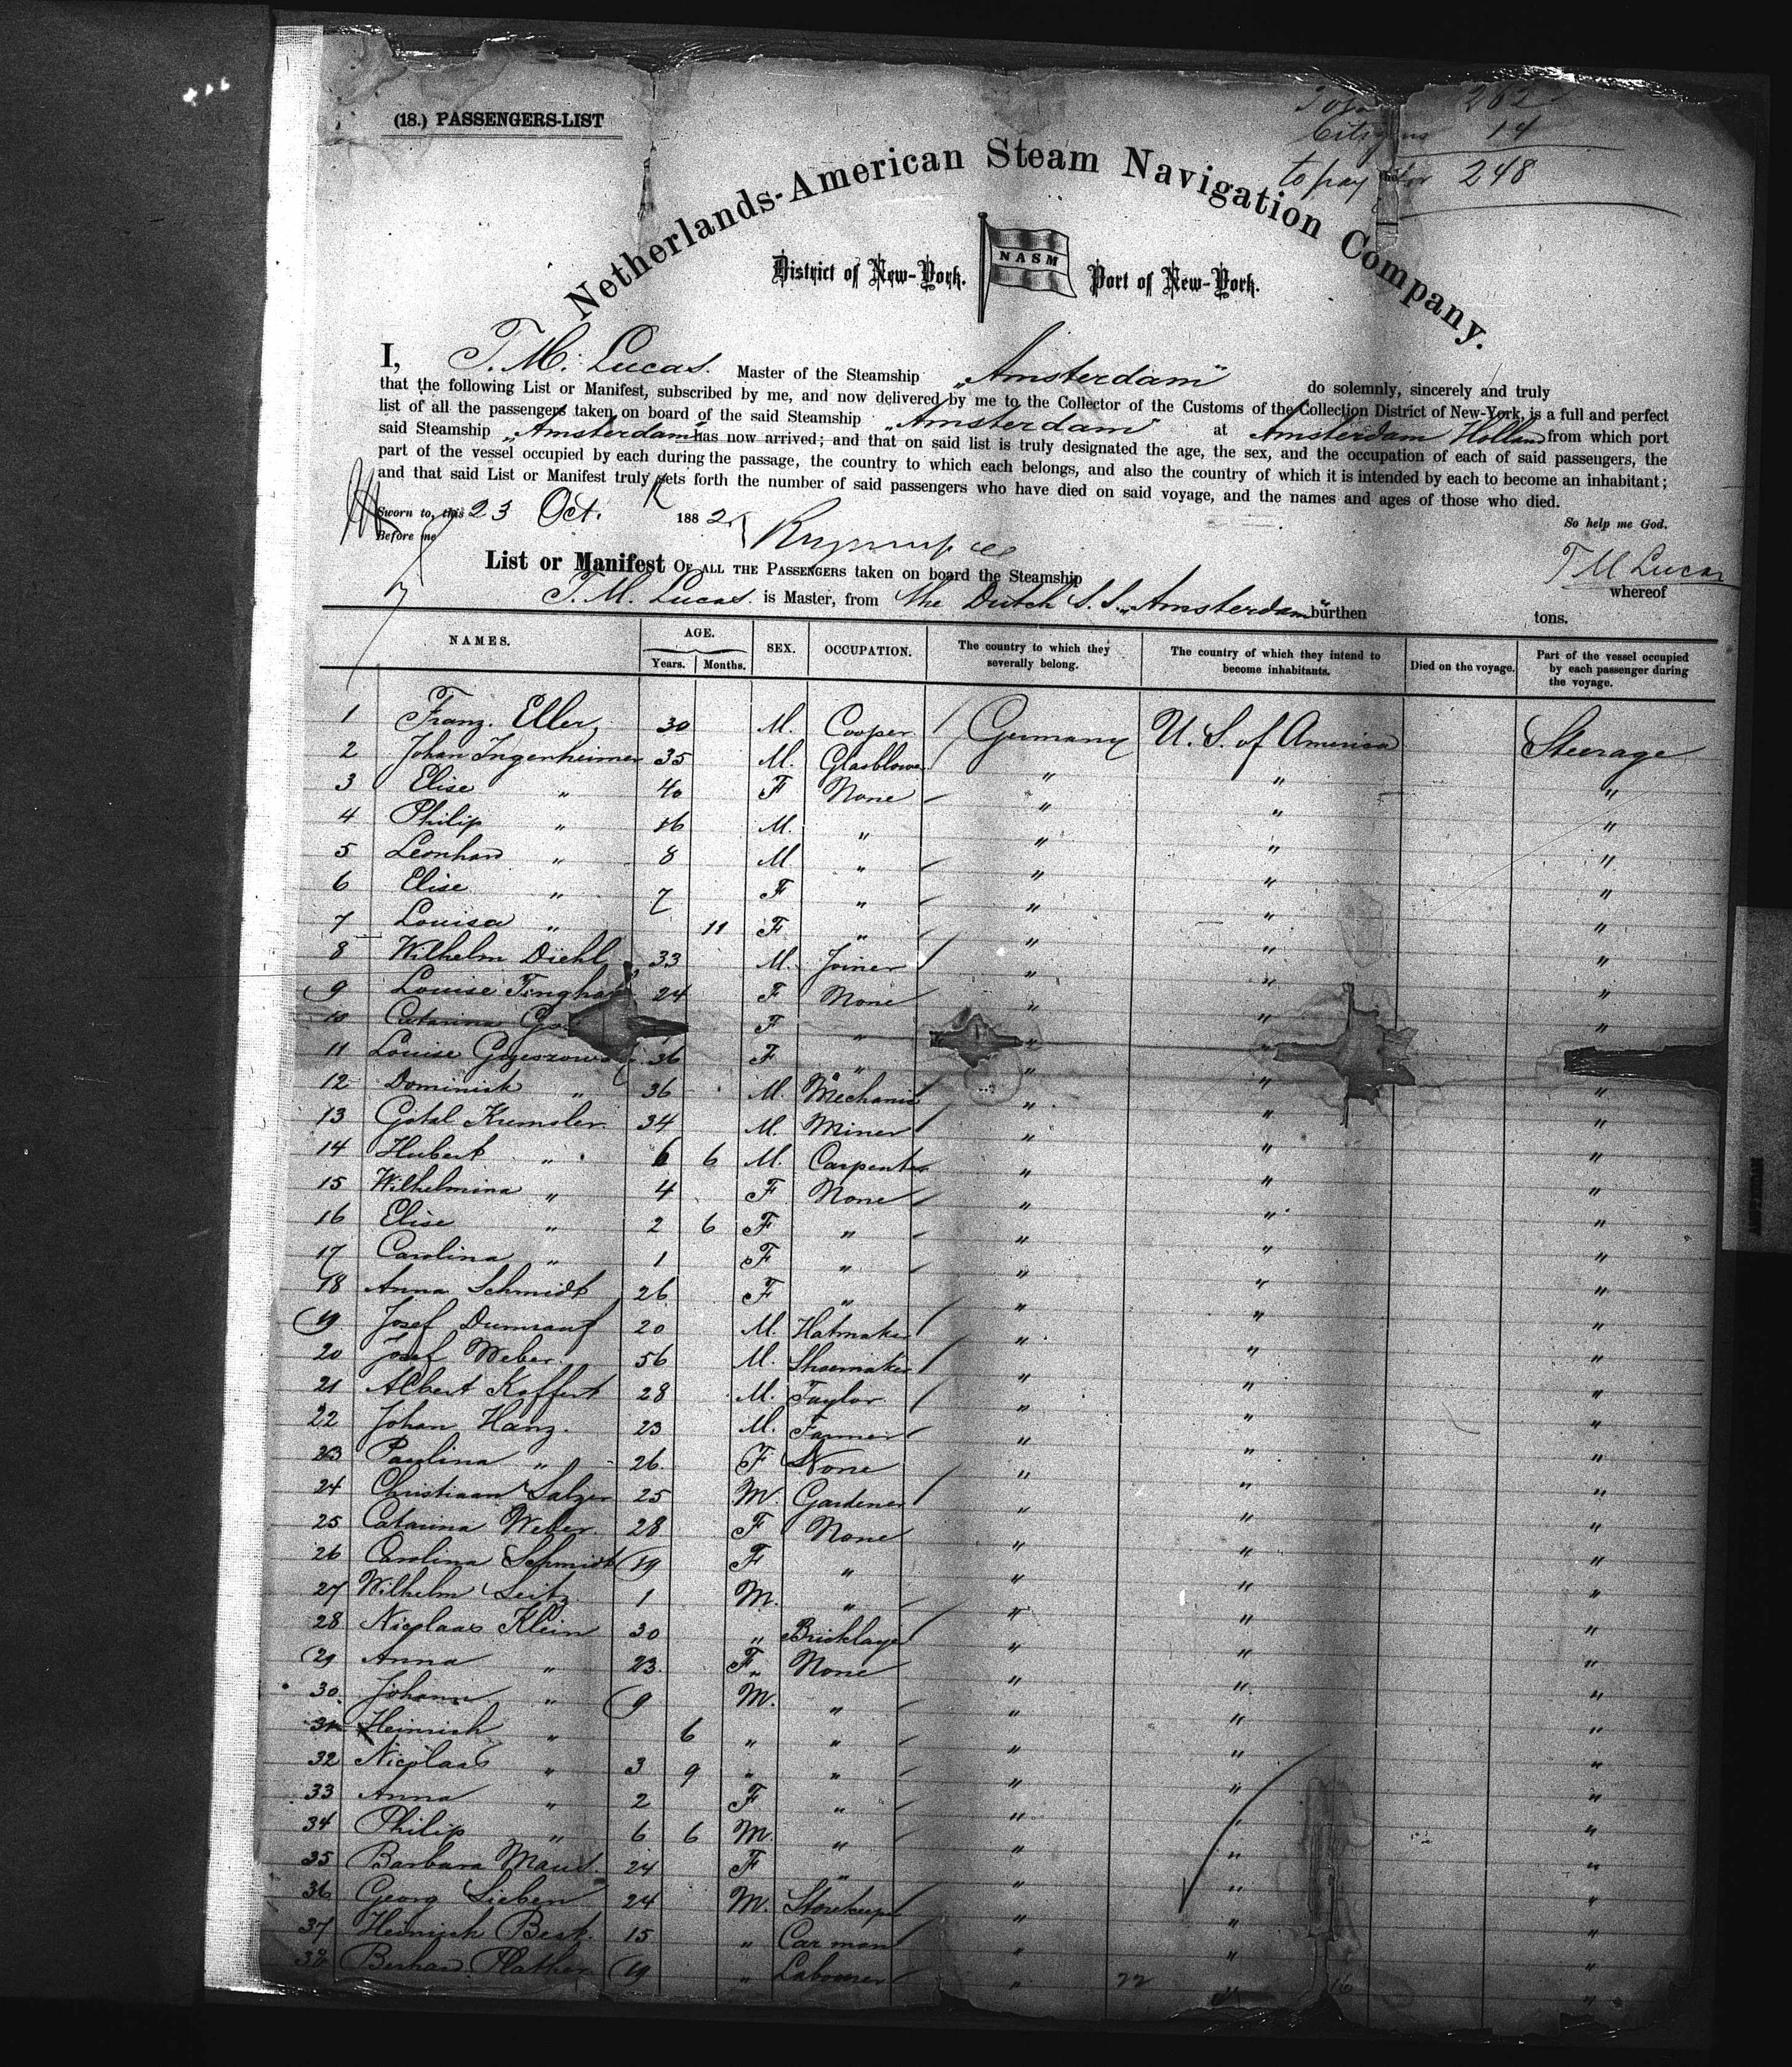 (18.) PASSENGERS-LIST
262
Citizens 14
to pay for 248
Netherlands-American Steam Navigation Company.
District of New-York. NASM Port of New-York.
I, T. M. Lucas. Master of the Steamship „Amsterdam" do solemnly, sincerely and truly
that the following List or Manifest, subscribed by me, and now delivered by me to the Collector of the Customs of the Collection District of New-York, is a full and perfect
list of all the passengers taken on board of the said Steamship „Amsterdam" at Amsterdam Holland from which port
said Steamship „Amsterdam" has now arrived; and that on said list is truly designated the age, the sex, and the occupation of each of said passengers, the
part of the vessel occupied by each during the passage, the country to which each belongs, and also the country of which it is intended by each to become an inhabitant;
and that said List or Manifest truly sets forth the number of said passengers who have died on said voyage, and the names and ages of those who died.
Sworn to, this 23 Oct. 1882. So help me God.
Before me
T M Lucas
List or Manifest OF ALL THE PASSENGERS taken on board the Steamship whereof
T. M. Lucas. is Master, from the Dutch S. S. „Amsterdam" burthen tons.
NAMES. AGE. Years. Months. SEX. OCCUPATION. The country to which they severally belong. The country of which they intend to become inhabitants. Died on the voyage. Part of the vessel occupied by each passenger during the voyage.
1 Franz. Eller 30 M. Cooper Germany U. S. of America Steerage
2 Johan Ingenheimer 35 M. Glasblower " " "
3 Elise " 40 F None " " "
4 Philip " 16 M. " " " "
5 Leonhard " 8 M " " " "
6 Elise " 7 F " " " "
7 Louisa " 11 F " " " "
8 Wilhelm Diehl 33 M. Joiner " " "
9 Louise 24 F None " " "
10 Catarina F " " " "
11 Louise 36 F " " " "
12 Dominick " 36 M. Mechanic " " "
13 Gotal Kremsler 34 M. Miner " " "
14 Hubert " 6 6 M. Carpenter " " "
15 Wilhelmina " 4 F None " " "
16 Elise " 2 6 F " " " "
17 Carolina " 1 F " " " "
18 Anna Schmidt 26 F " " " "
19 Josef Dumrauf 20 M. Hatmaker " " "
20 Josef Weber 56 M. Shoemaker " " "
21 Albert Koffert 28 M. Taylor " " "
22 Johan Hanz. 23 M. Farmer " " "
23 Paulina " 26 F None " " "
24 Christiaan Salzer 25 M. Gardener " " "
25 Catarina Weber 28 F None " " "
26 Carolina Schmidt 19 F " " " "
27 Wilhelm Seitz 1 M. " " " "
28 Nicolaas Klein 30 " Bricklayer " " "
29 Anna " 23. F. None " " "
30. Johann " 9 M. " " " "
31 Heinrich " 6 " " " " "
32 Nicolaas " 3 9 " " " " "
33 Anna " 2 F " " " "
34 Philip " 6 6 M. " " " "
35 Barbara 24 F " " " "
36 Georg Lieben 24 M. Storekeeper " " "
37 Heinrich Best. 15 " Car man " " "
38 Berhard Plather 19 " Labourer " " "
22 16